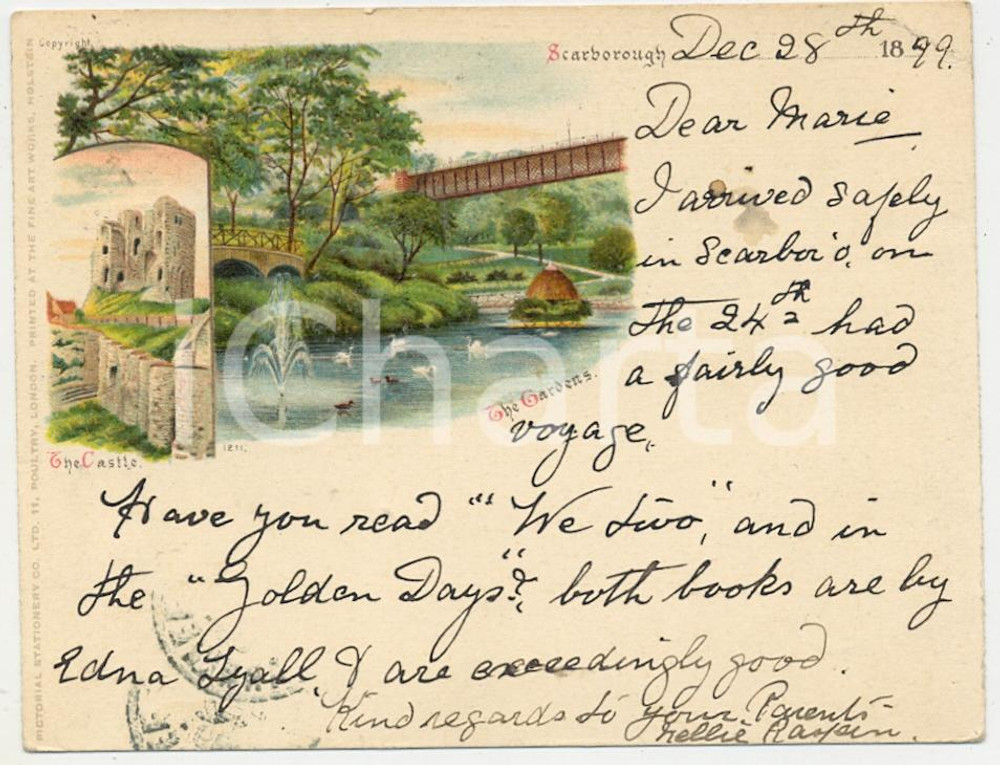 Copyright.
Scarborough Dec 28th 1899.
Dear Marie
I arrived safely
in Scarbor'o, on
the 24th had
a fairly good
The Gardens.
voyage,
The Castle.
1211.
Have you read "We two", and in
the "Golden Days"?, both books are by
Edna Lyall, & are exceedingly good.
Kind regards to your Parents
Nellie
PICTORIAL STATIONERY CO. LTD. 11, POULTRY, LONDON. PRINTED AT THE FINE ART WORKS, HOLSTEIN
iCharta